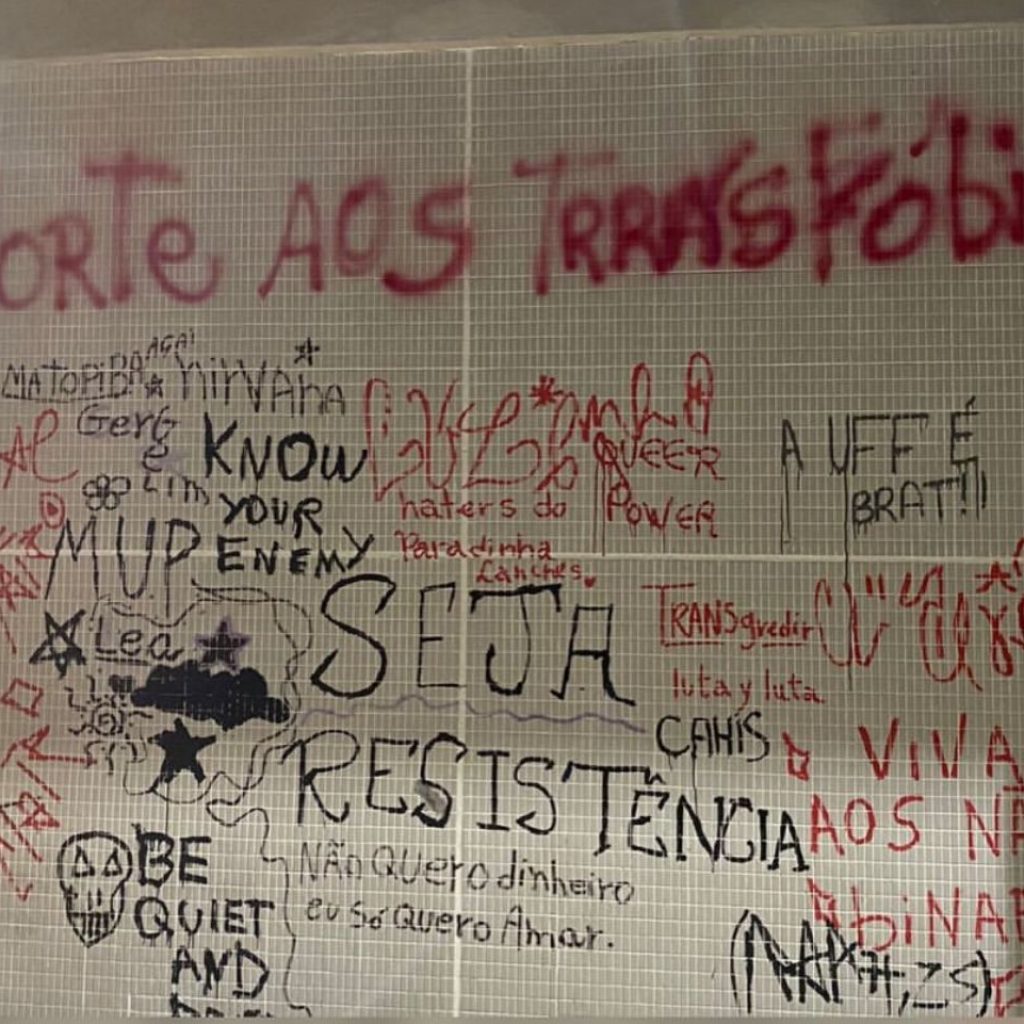 ORTE AOS TRANSFÓBI
AÇAI
MATOPIBA NIRVANA
Gerg
e
Lim
KNOW
YOUR
ENEMY
MUP
haters do
Paradinha
Lanches
QUEER
POWER
A UFF É
BRAT!!
Lea
SEJA
RESISTÊNCIA
TRANSgredir
luta y luta
CAHIS
VIVA
AOS NÃ
ABiNAR
BE
QUIET
AND
NÃO QUERO dinheiro
eu Só QUERO Amar.